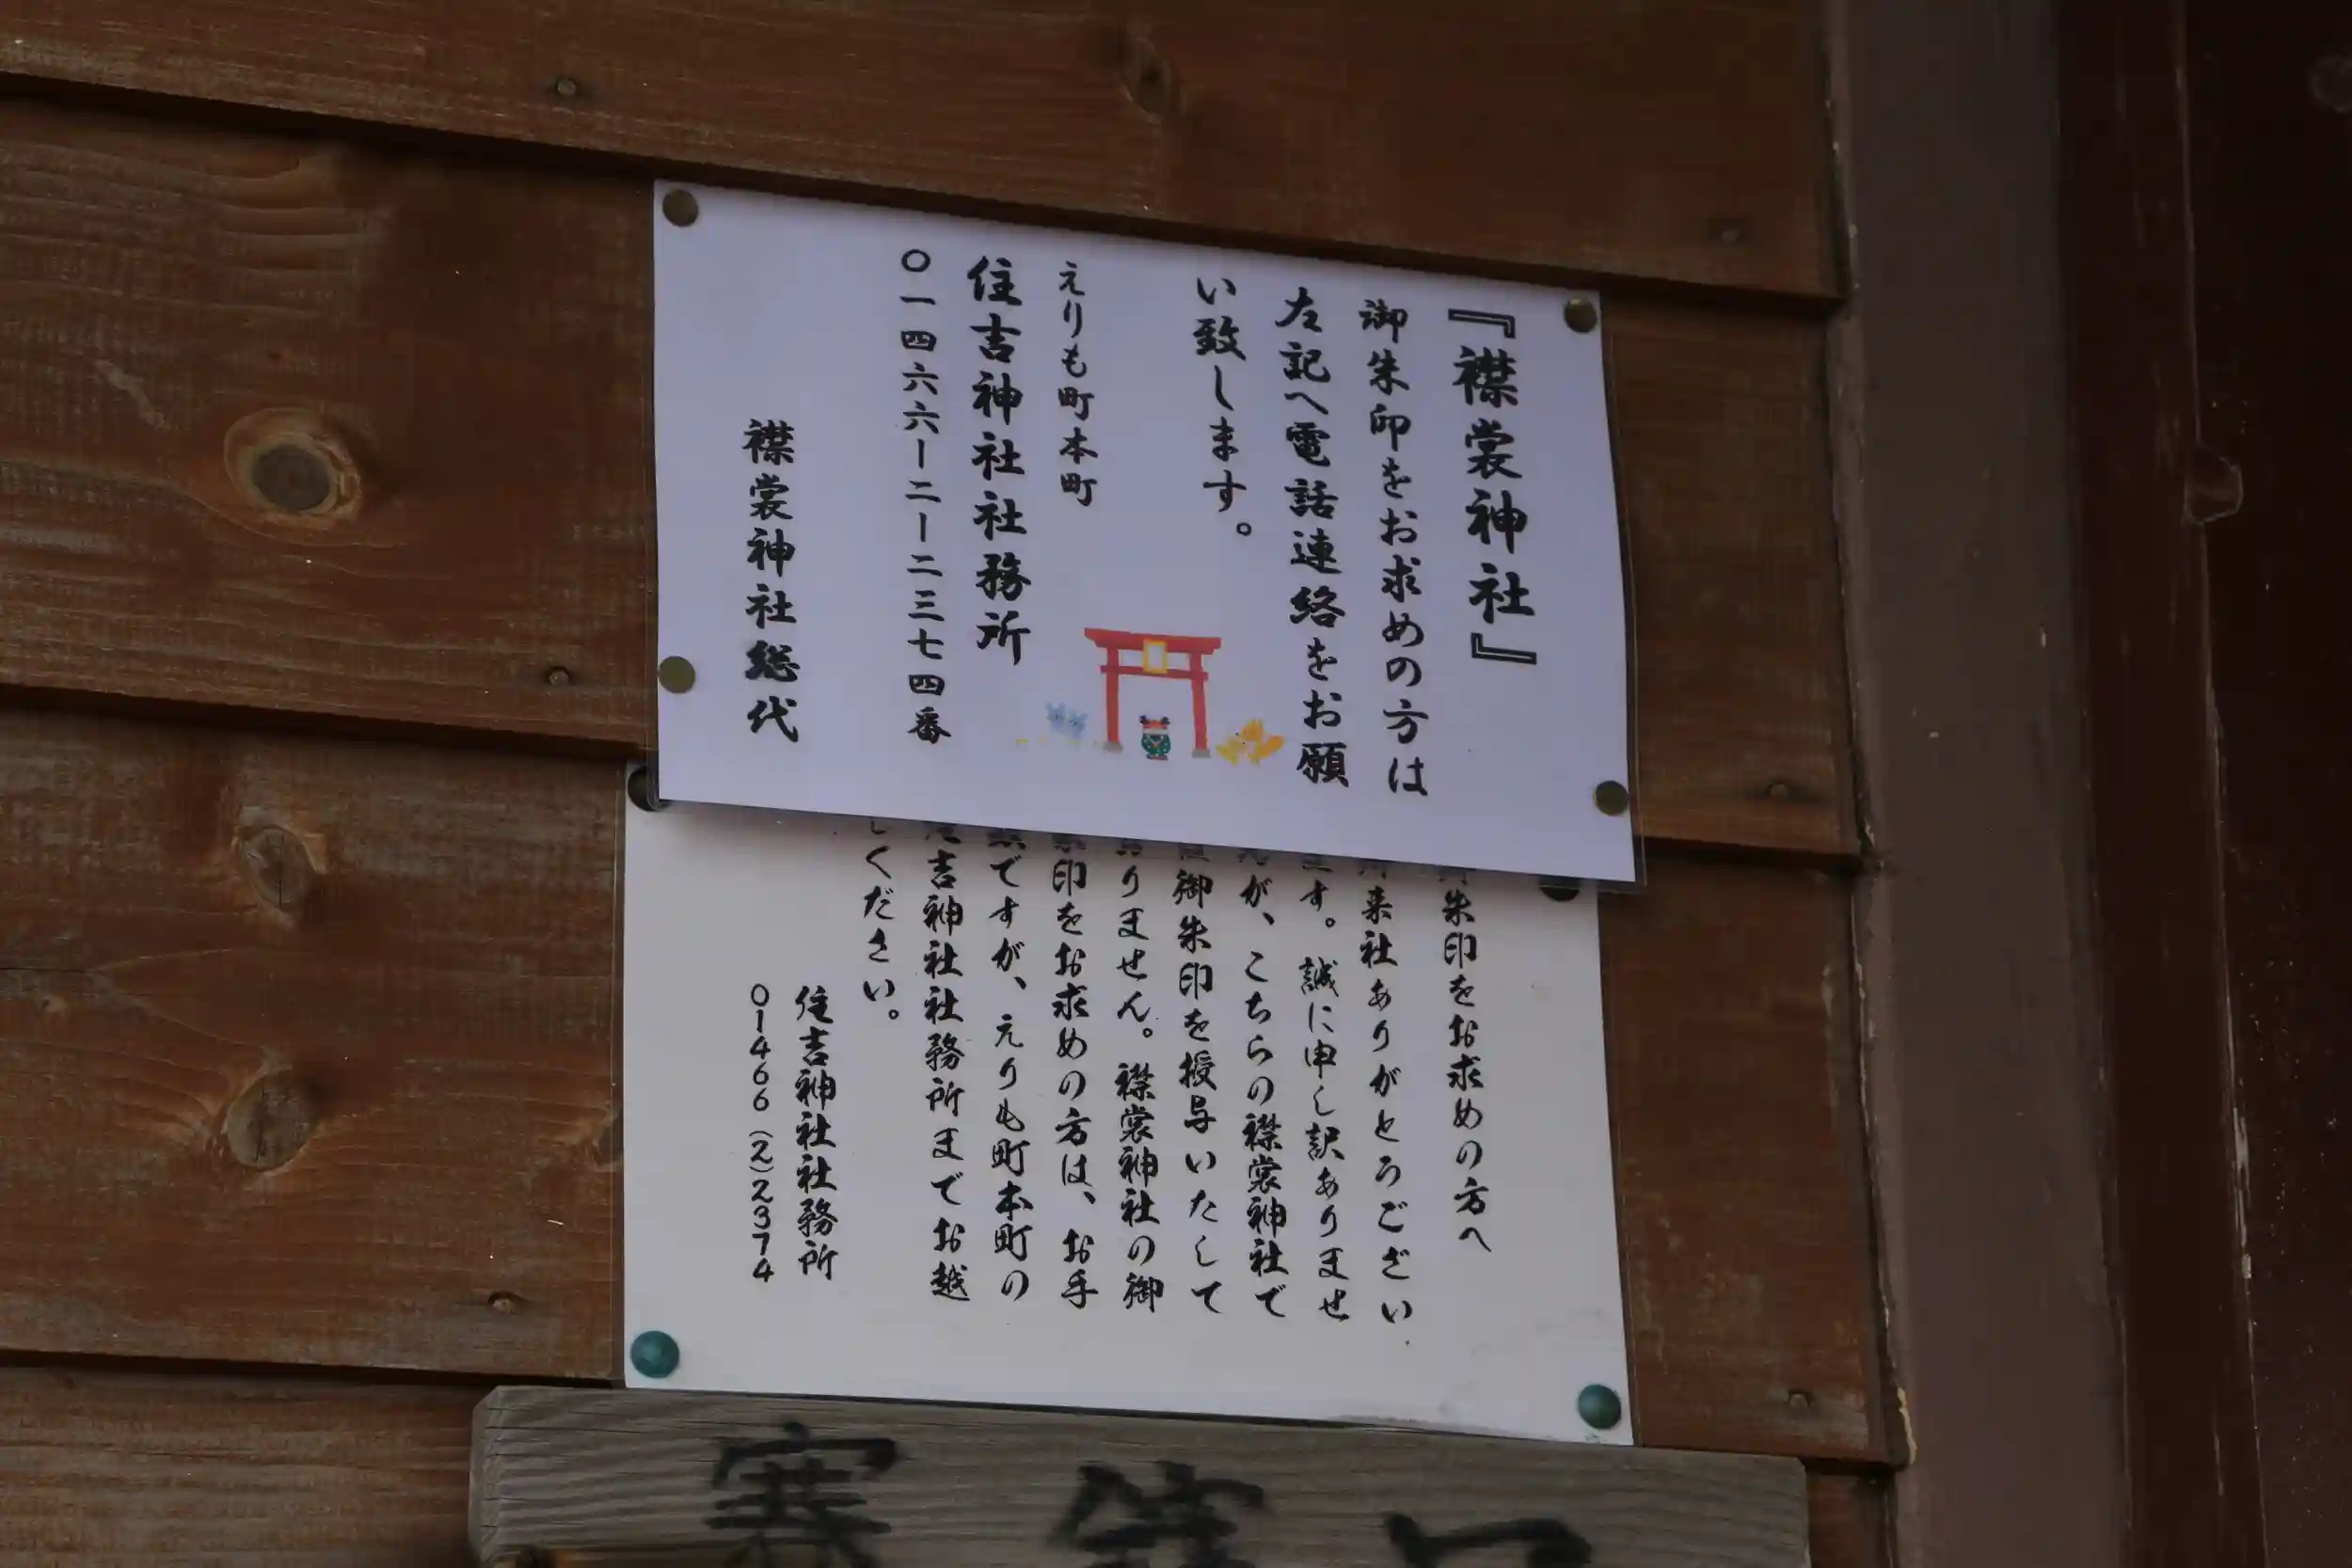 『襟裳神社』
御朱印をお求めの方は
左記へ電話連絡をお願
い致します。
えりも町本町
住吉神社社務所
〇一四六六ー二ー二三七四番
襟裳神社総代
朱印をお求めの方へ
来社ありがとうござい
す。誠に申し訳ありませ
が、こちらの襟裳神社で
御朱印を授与いたして
りません。襟裳神社の御
印をお求めの方は、お手
ですが、えりも町本町の
吉神社社務所までお越
しください。
住吉神社社務所
01466(2)2374
賽銭口